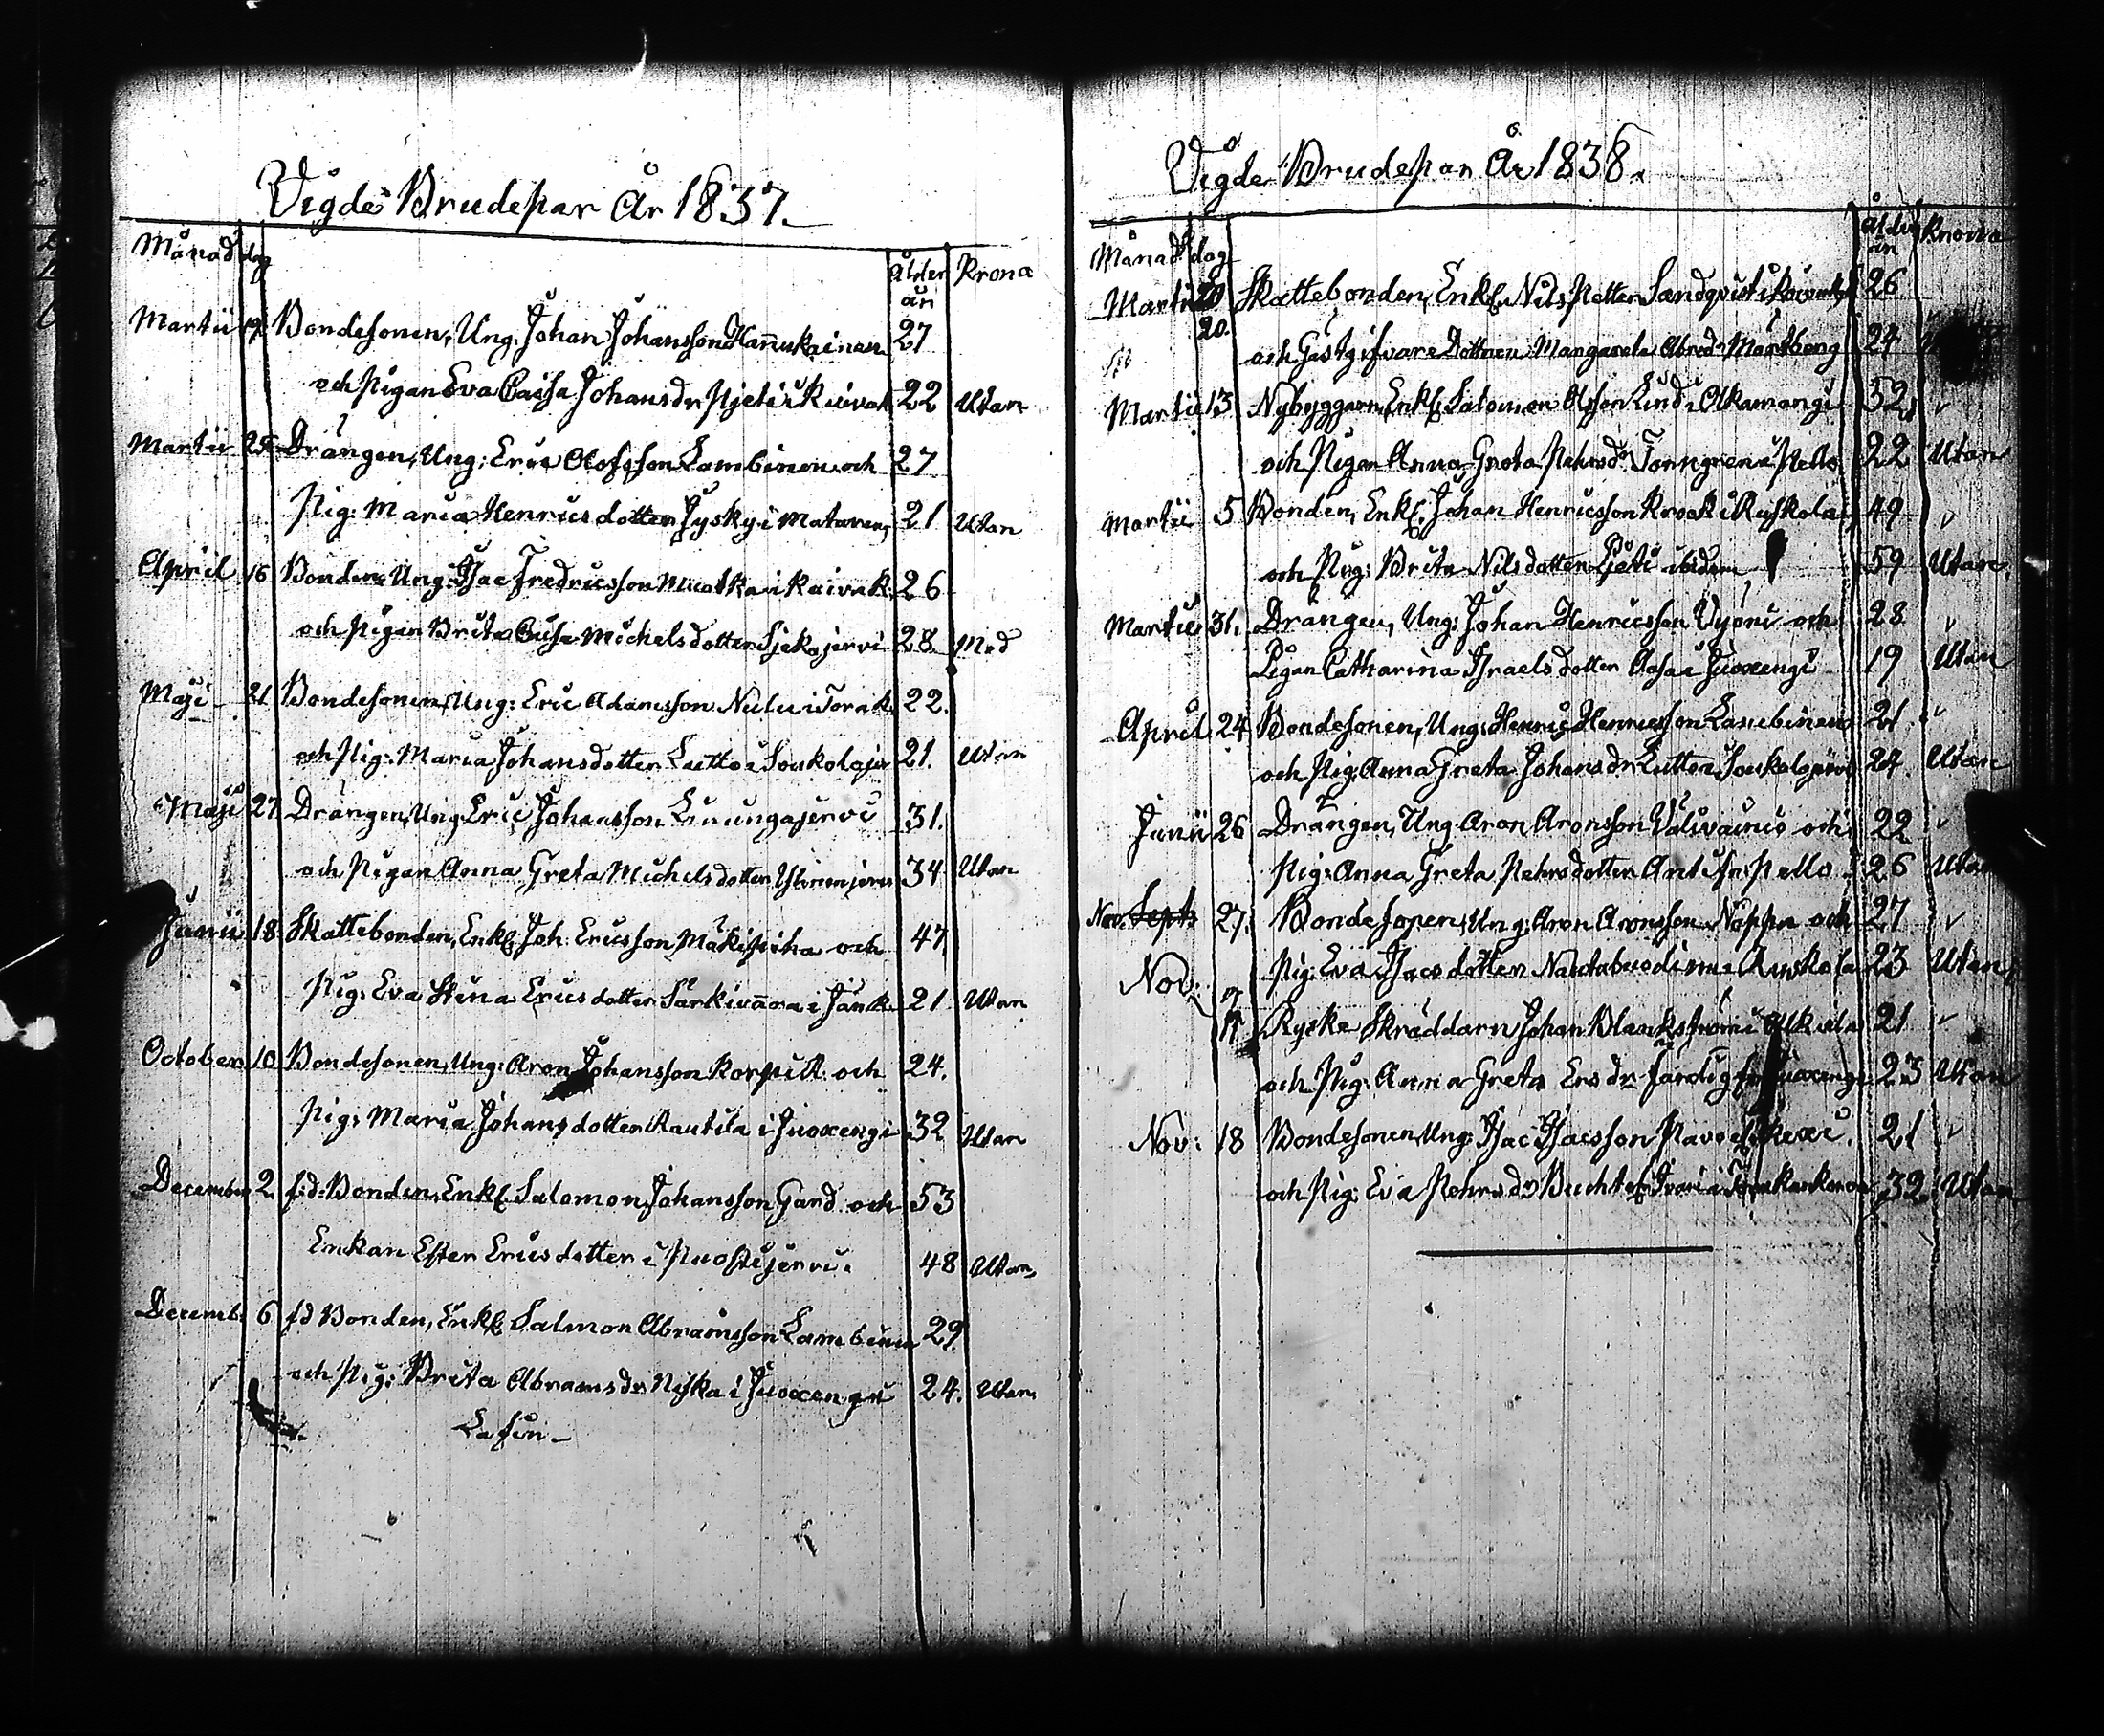 Vigde Brudepar År 1837.
Månad dag ålder år Krona
Martii 19. Bondesonen, Ung. Johan Johansson Hannukainen 27
och Pigan Eva Caisa Johansdr Pjeti i Kuivak. 22 Utan
Martii 25 Drängen, Ung: Eric Olofsson Lambinen och 27
Pig: Maria Henricsdotter Jysky i Matareng 21 Utan
April 16 Bonden, Ung: Isac Fredricsson Muotka i Kaivak. 26
och Pigan Brita Caisa Michelsdotter Sjekajervi 28. Med
Maji 21 Bondesonen, Ung: Eric Adamsson Nulu i Torak. 22.
och Pig: Maria Johansdotter Luitto i Soukolojer 21. Utan
Maji 27. Drängen, Ung Eric Johansson Liuungajervi 31.
och Pigan Anna Greta Michelsdotter 34 Utan
Junii 18 Skattebonden, Enkl. Joh. Ericsson Mäkipiha och 47
Pig: Eva Stina Ericsdotter Särkivaara i Jänk. 21 Utan
October 10 Bondesonen, Ung: Aron Johansson Korpik. och 24.
Pig: Maria Johansdotter Rautila i Juoxengi 32 Utan
December 2. f:d: Bonden, Enkl. Salomon Johansson Gard och 53
Enkan Ester Ericsdotter i Puostijervi. 48 Utan
Decemb. 6 fd Bonden, Enkl Salmon Abramsson Lambinen 29.
och Pig: Brita Abramsdr Niska i Juoxengi 24. Utan
Vigde Brudepar År 1838.
Månad dag ålder år Krona
Martii 20 Skattebonden, Enkl. Nils Petter Sandqvist i 26
20.
och Gästgifvare Dottren Margareta Abrsdr Mörtberg 24
Martii 13 Nybyggaren, Enkl. Salomon Olsson Lund i Olkamangi 52 "
och Pigan Anna Greta Pehrsdr Torngren i Pello 22 Utan
Martii 5 Bonden, Enkl. Johan Henricsson Krook i Ruskola 49 "
och Pig: Brita Nilsdotter Pjeti ibidem 59 Utan.
Martii 31. Drängen, Ung: Johan Henricsson Vyöni och 28 "
Pigan Catharina Israelsdotter Aosa i Juoxengi 19 Utan
April 24 Bondesonen, Ung: Henric Henricsson Lambinen 21 "
och Pig: Anna Greta Johansdr Luitto i Soukolojärvi 24 Utan
Junii 26 Drängen, Ung. Aron Aronsson Valivainio och 22 "
Pig: Anna Greta Pehrsdotter Antis fr: Pello 26 Utan
Nov. Sept. 27. Bondesonen, Ung: Aron Aronsson Nöppa och 27 "
Pig: Eva Isacsdotter i Ruskola 23 Utan
Nov. Ryske Skräddarn Johan Blankström i Alkula 21 "
och Pig: Anna Greta Ersdr Färdig fr Juoxengi 23 Utan
Nov: 18 Bondesonen, Ung: Isac Isacsson 21 "
och Pig: Eva Pehrsdr Bucht 32 Utan